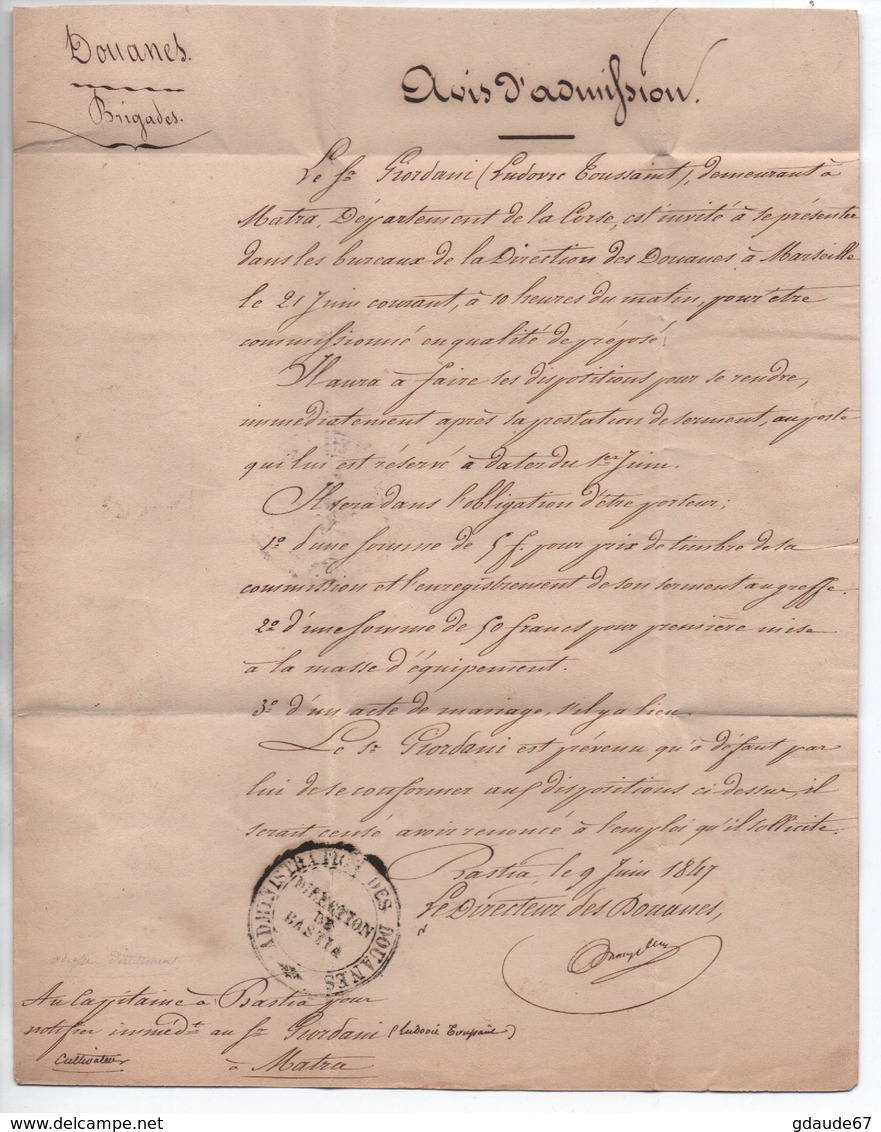 Douanes.
Brigades.
Avis d'admission.
Le Sr Giordani (Ludovic Toussaint), demeurant à
Matra, Département de la Corse, est invité à se présenter
dans les bureaux de la Direction des Douanes à Marseille
le 21 Juin courant, à 10 heures du matin, pour être
commissionné en qualité de préposé.
Il aura à faire ses dispositions pour se rendre,
immédiatement après sa prestation de serment, au poste
qui lui est réservé à dater du 1er Juin.
Il sera dans l'obligation d'être porteur;
1o d'une somme de 5 f. pour prix de timbre de sa
commission et l'enregistrement de son serment au greffe.
2o d'une somme de 50 francs pour première mise
à la masse d'équipement.
3o d'un acte de mariage, s'il y a lieu.
Le Sr Giordani est prévenu qu'à défaut par
lui de se conformer aux dispositions ci dessus, il
serait censé avoir renoncé à l'emploi qu'il sollicite.
Bastia, le 9 Juin 1847
Le Directeur des Douanes,
ADMINISTRATION DES DOUANES
DIRECTION
DE
BASTIA
Au Capitaine à Bastia pour
notifier imméd.t au Sr Giordani (Ludovic Toussaint)
Cultivateur
à Matra
delcampe.net
gdaude67